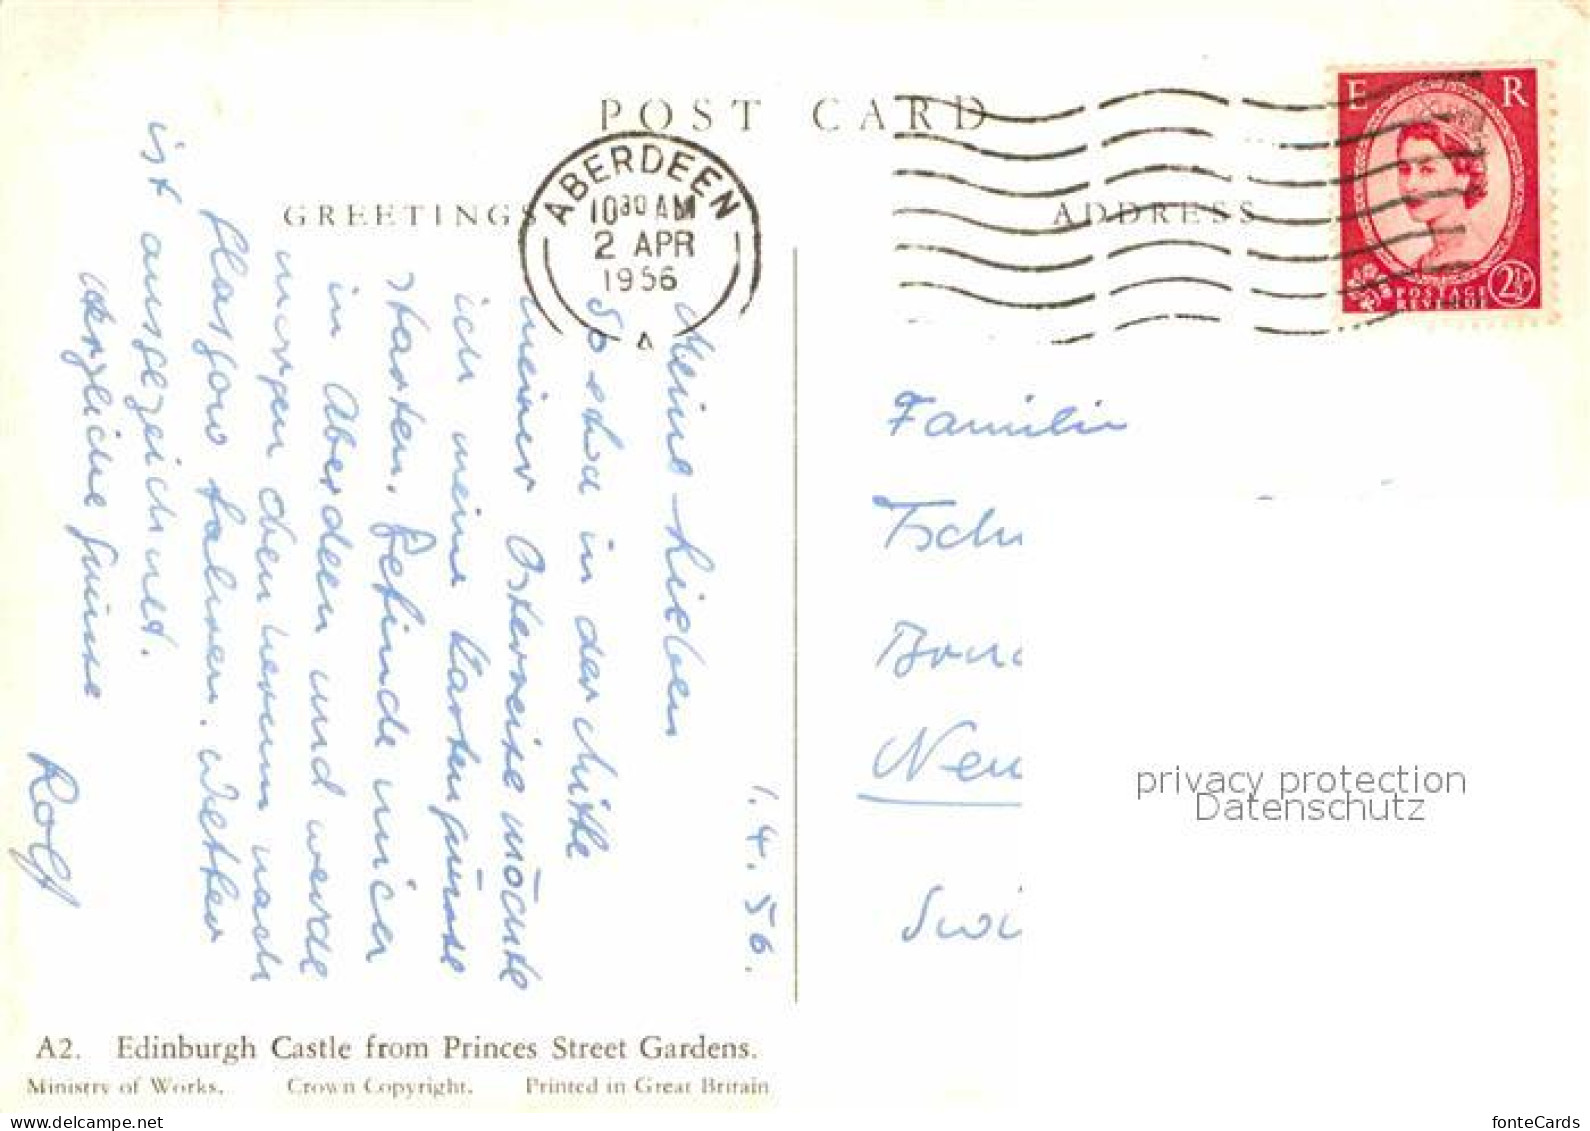 POST CARD
GREETINGS
ADDRESS
ABERDEEN
10 30 AM
2 APR
1956
A
E R
POSTAGE
REVENUE
2½D
1.4.56.
Meine Lieben
So etwa in der Mitte
meiner Osterreise möchte
ich meine Kartengrüsse
starten. Befinde mich
in Aberdeen und werde
morgen oben herum nach
Glasgow fahren. Wetter
ist ausgezeichnet.
Herzliche Grüsse
Rolf
Familie
Tsch
Neu
privacy protection
Datenschutz
A2. Edinburgh Castle from Princes Street Gardens.
Ministry of Works. Crown Copyright. Printed in Great Britain
delcampe.net
fonteCards